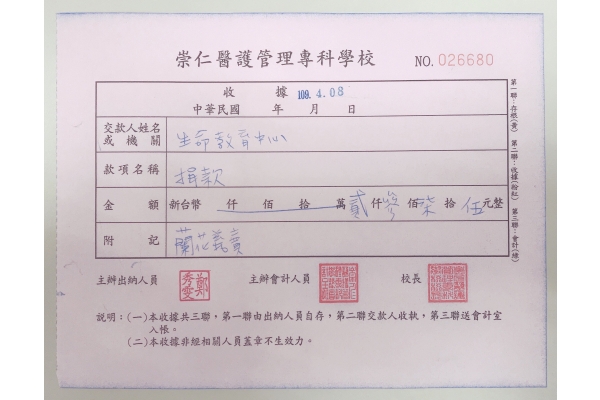 崇仁醫護管理專科學校
NO.026680
收 據 109.4.08
中華民國 年 月 日
交款人姓名或機關 生命教育中心
款項名稱 捐款
金 額 新台幣 仟 佰 拾 萬 貳 仟 參 佰 柒 拾 伍 元整
附 記 蘭花義賣
主辦出納人員 鄭秀雯 主辦會計人員 校長
說明：(一)本收據共三聯，第一聯由出納人員自存，第二聯交款人收執，第三聯送會計室
入帳。
(二)本收據非經相關人員蓋章不生效力。
第一聯：存根(黃) 第二聯：收據(粉紅) 第三聯：會計(綠)